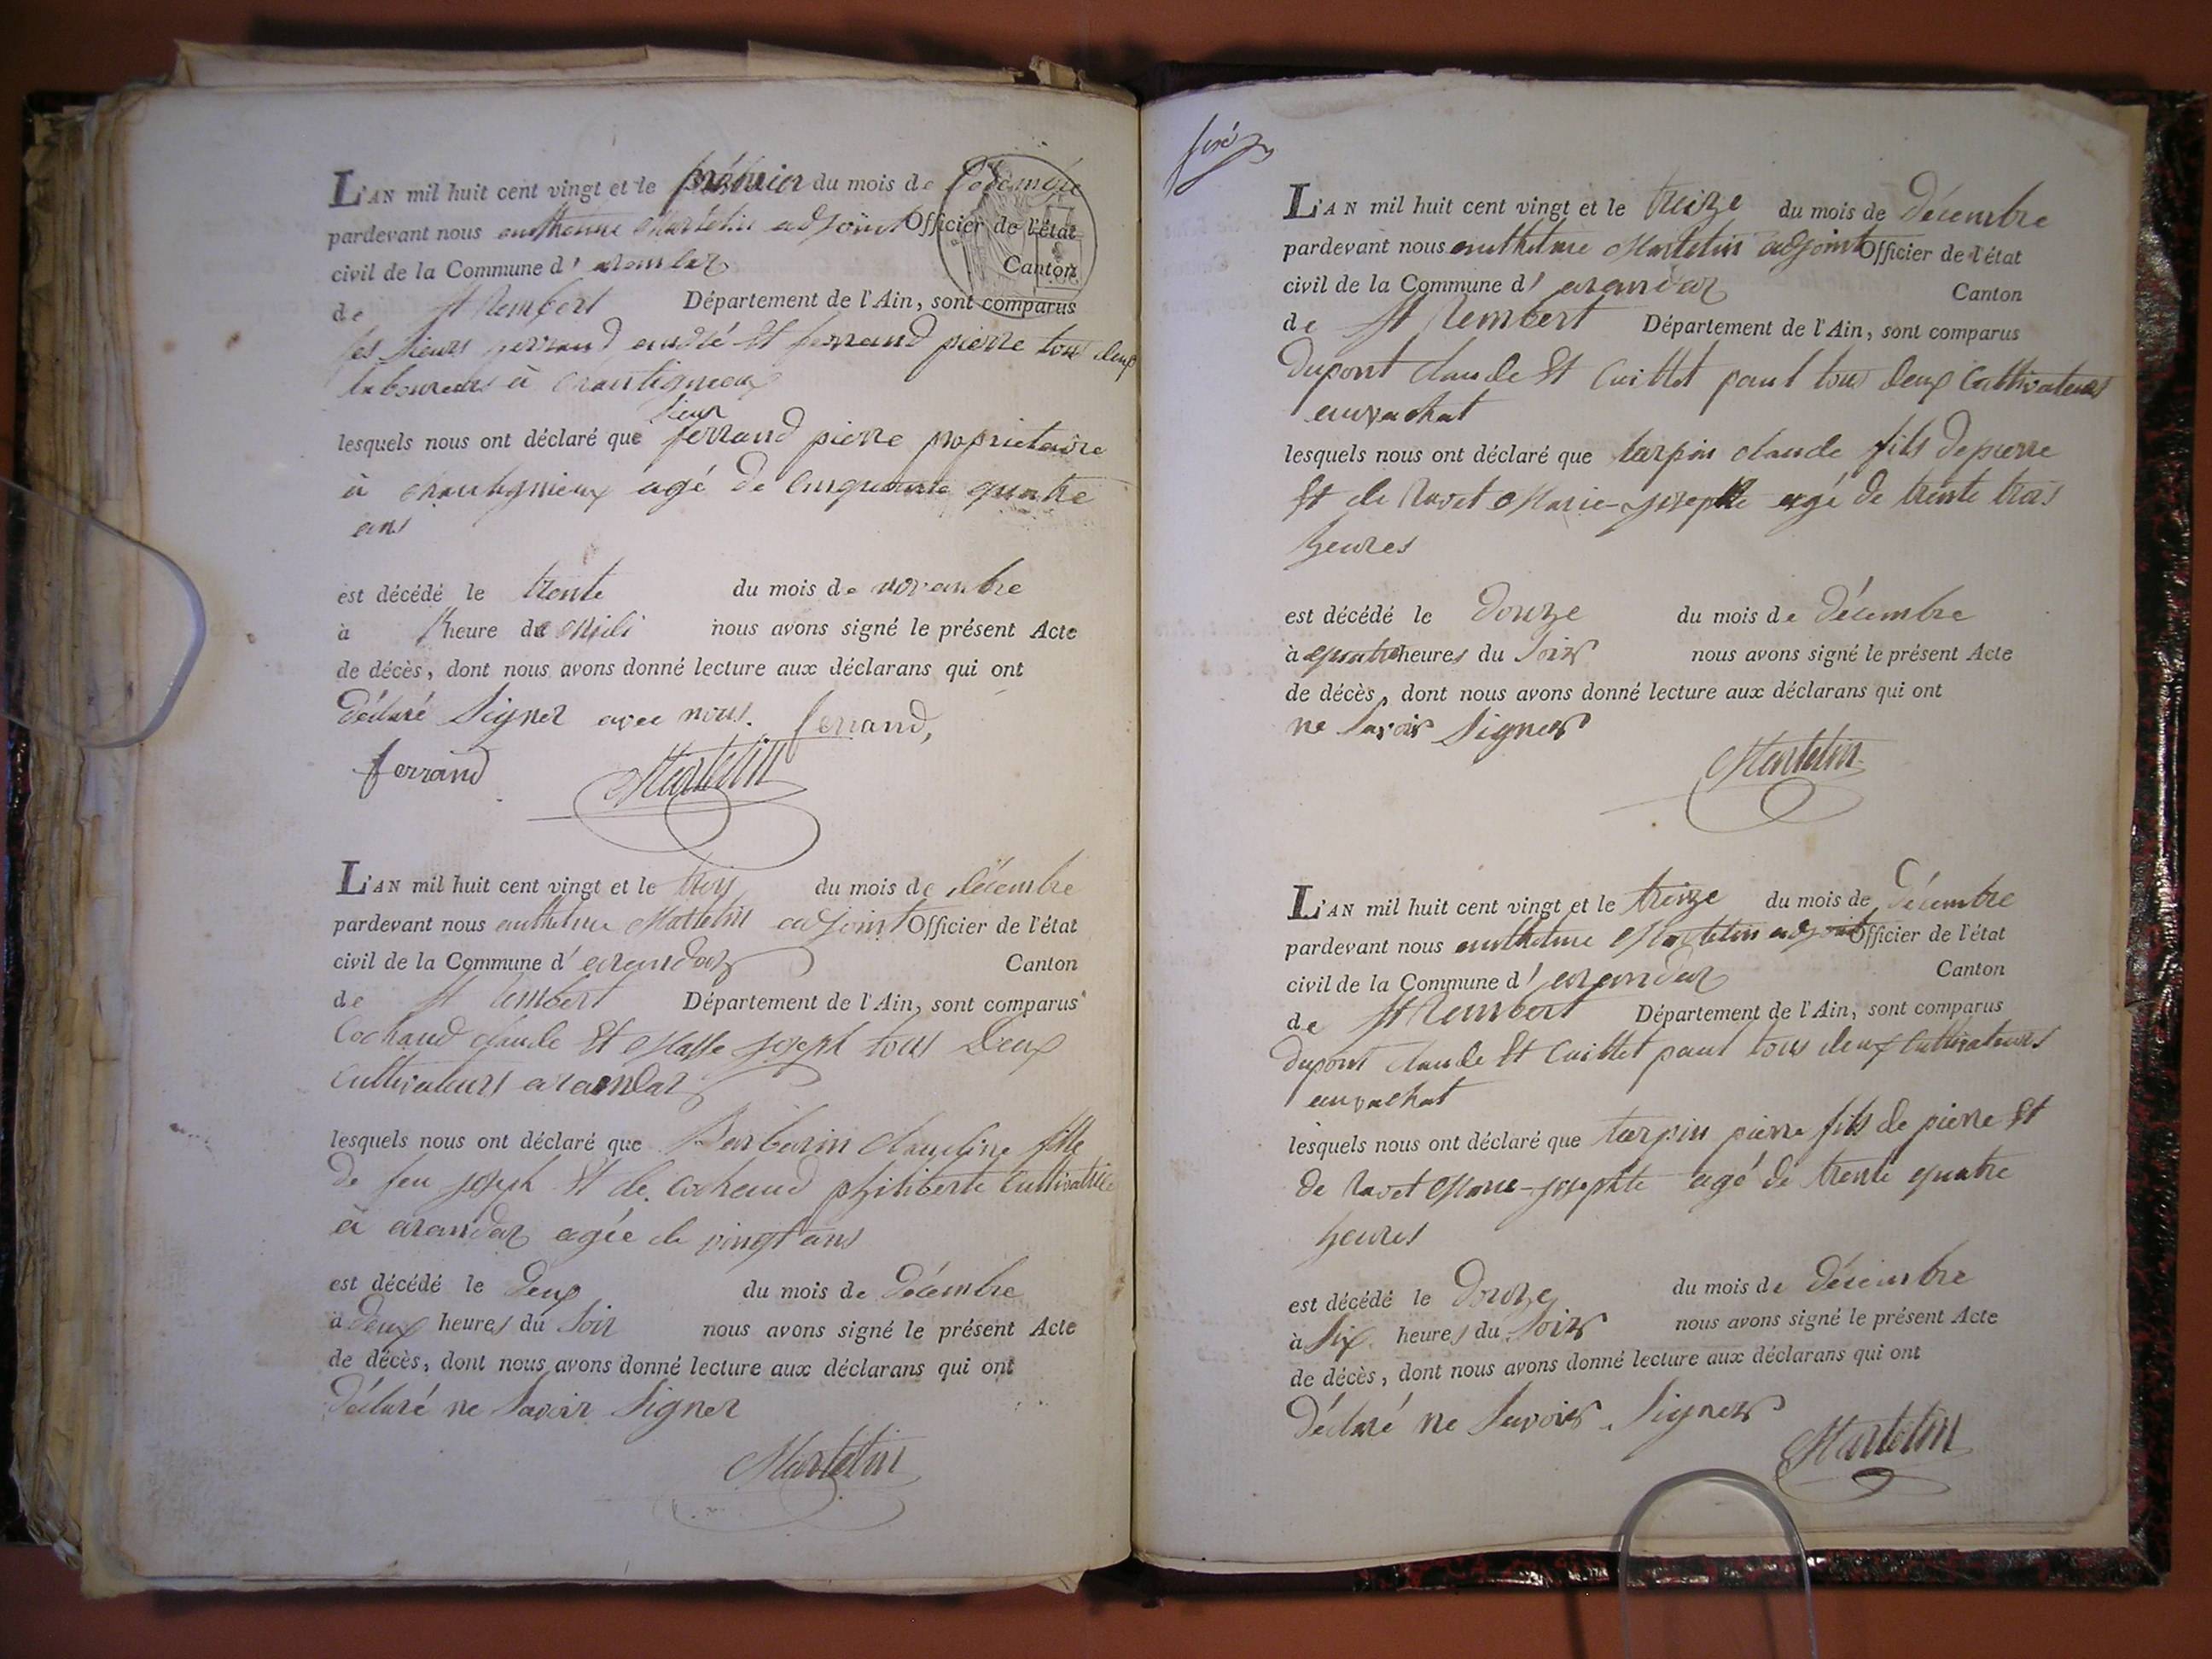 L'AN mil huit cent vingt et le premier du mois de décembre
pardevant nous anthelme Martelin adjoint Officier de l'état
civil de la Commune d' arandaz Canton
de St Rembert Département de l'Ain, sont comparus
les sieurs ferrand andré Et ferrand pierre tous deux
laboureurs à
lesquels nous ont déclaré que sieur ferrand pierre proprietaire
à agé de Cinquante quatre
ans
est décédé le trente du mois de novembre
à heure de Midi nous avons signé le présent Acte
de décès, dont nous avons donné lecture aux déclarans qui ont
déclaré Signer avec nous. ferrand,
ferrand Martelin
L'AN mil huit cent vingt et le trois du mois de décembre
pardevant nous anthelme Martelin adjoint Officier de l'état
civil de la Commune d' arandaz Canton
de St Rembert Département de l'Ain, sont comparus
Cochaud claude Et Masse joseph tous Deux
Cultivateurs arandaz
lesquels nous ont déclaré que Barbarin Claudine fille
De feu joseph Et de Cochaud philiberte Cultivatrice
à arandaz agée de vingt ans
est décédé le Deux du mois de Décembre
à deux heures du Soir nous avons signé le présent Acte
de décès, dont nous avons donné lecture aux déclarans qui ont
déclaré ne Savoir Signer
Martelin
L'AN mil huit cent vingt et le treize du mois de décembre
pardevant nous anthelme Martelin adjoint Officier de l'état
civil de la Commune d' arandaz Canton
de St Rembert Département de l'Ain, sont comparus
Dupont claude Et Cuillet paul tous deux Cultivateurs
auvachat
lesquels nous ont déclaré que tarpin claude fils de pierre
Et de Ravet Marie-josephte agé de trente trois
heures
est décédé le Douze du mois de décembre
à quatre heures du Soir nous avons signé le présent Acte
de décès, dont nous avons donné lecture aux déclarans qui ont
ne Savoir Signer
Martelin
L'AN mil huit cent vingt et le treize du mois de Décembre
pardevant nous anthelme Martelin adjoint Officier de l'état
civil de la Commune d' arandaz Canton
de St Rembert Département de l'Ain, sont comparus
Dupont claude Et Cuillet paul tous deux Cultivateurs
auvachat
lesquels nous ont déclaré que tarpin pierre fils de pierre Et
de Ravet Marie-josephte agé de trente quatre
heures
est décédé le Douze du mois de Décembre
à Six heures du Soir nous avons signé le présent Acte
de décès, dont nous avons donné lecture aux déclarans qui ont
Déclaré ne Savoir Signer
Martelin